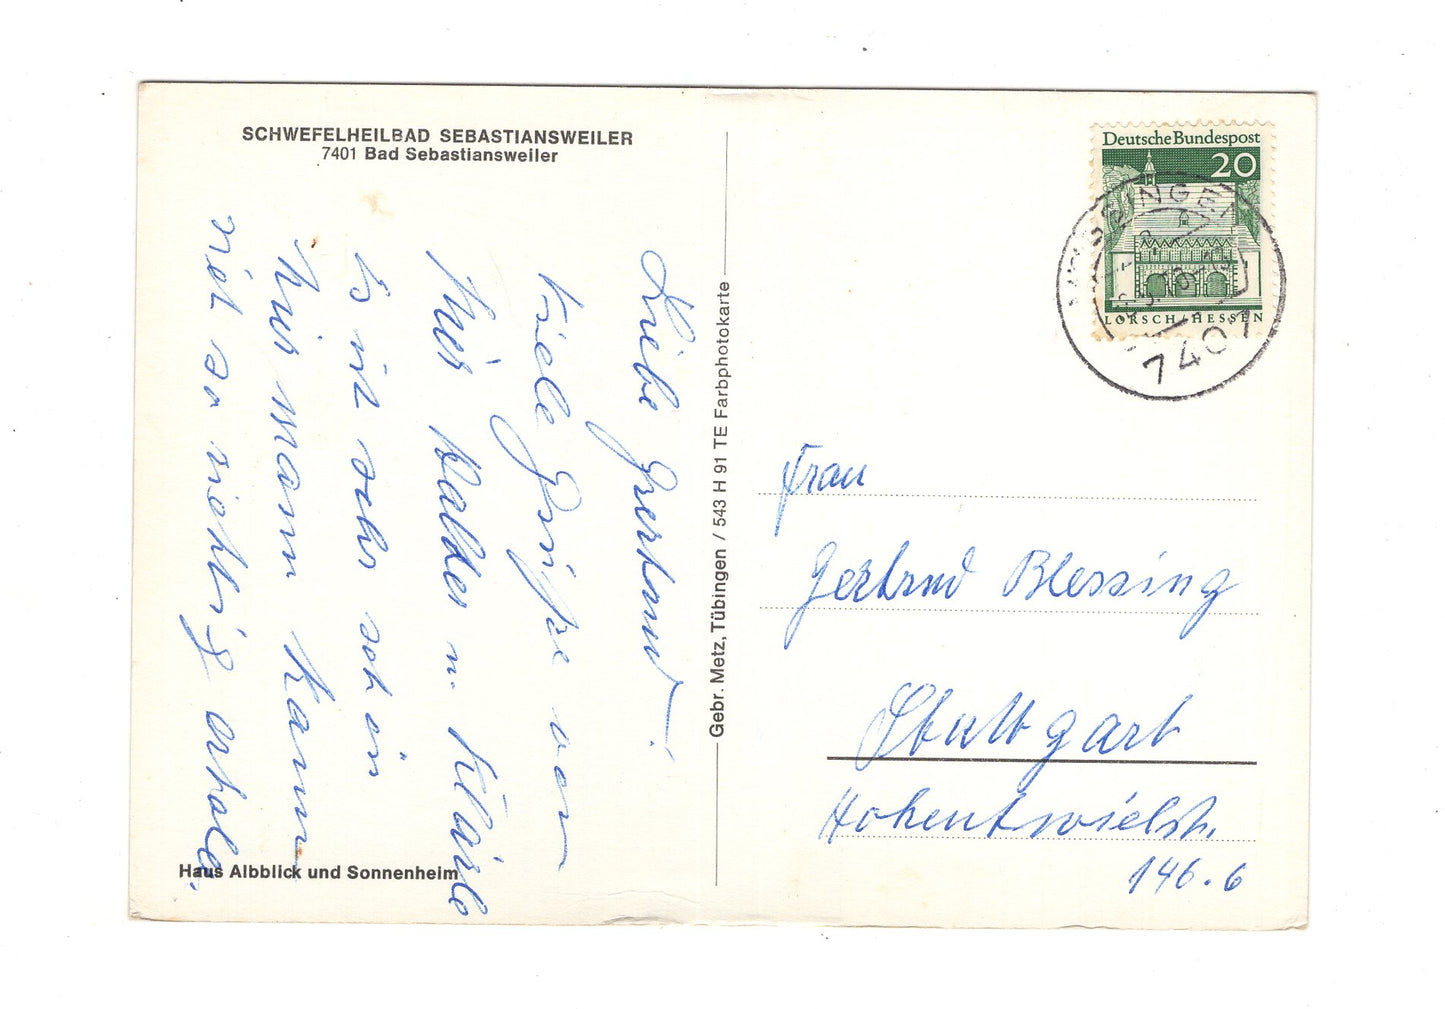 SCHWEFELHEILBAD SEBASTIANSWEILER
7401 Bad Sebastiansweiler
Liebe Gertraud!
Viele Grüße von
hier Walter u. Kläre
Es ist sehr schön
hier Mann kann
sich so richtig erhole.
Haus Albblick und Sonnenheim
Gebr. Metz, Tübingen / 543 H 91 TE Farbphotokarte
Deutsche Bundespost
20
LORSCH/HESSEN
7401
Frau
Gertrud Blessing
Stuttgart
Hohentwielstr.
146.6